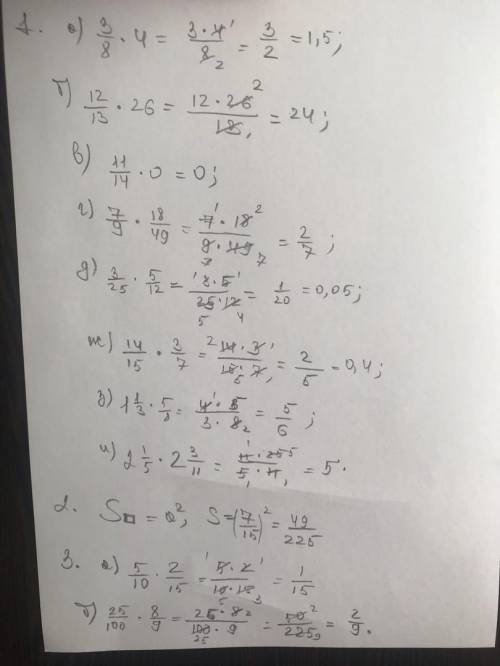 1. а) 3/8 · 4 = 3·4/8 = 3/2 = 1,5;
б) 12/13 · 26 = 12·26/13 = 24;
в) 11/14 · 0 = 0;
г) 7/9 · 18/49 = 7·18/9·49 = 2/7;
д) 3/25 · 5/12 = 3·5/25·12 = 1/20 = 0,05;
ж) 14/15 · 3/7 = 14·3/15·7 = 2/5 = 0,4;
з) 1 1/3 · 5/8 = 4·5/3·8 = 5/6;
и) 2 1/5 · 2 3/11 = 11·25/5·11 = 5.
2. S□ = a², S = (7/15)² = 49/225
3. а) 5/10 · 2/15 = 5·2/10·15 = 1/15
б) 25/100 · 8/9 = 25·8/100·9 = 50/225 = 2/9.